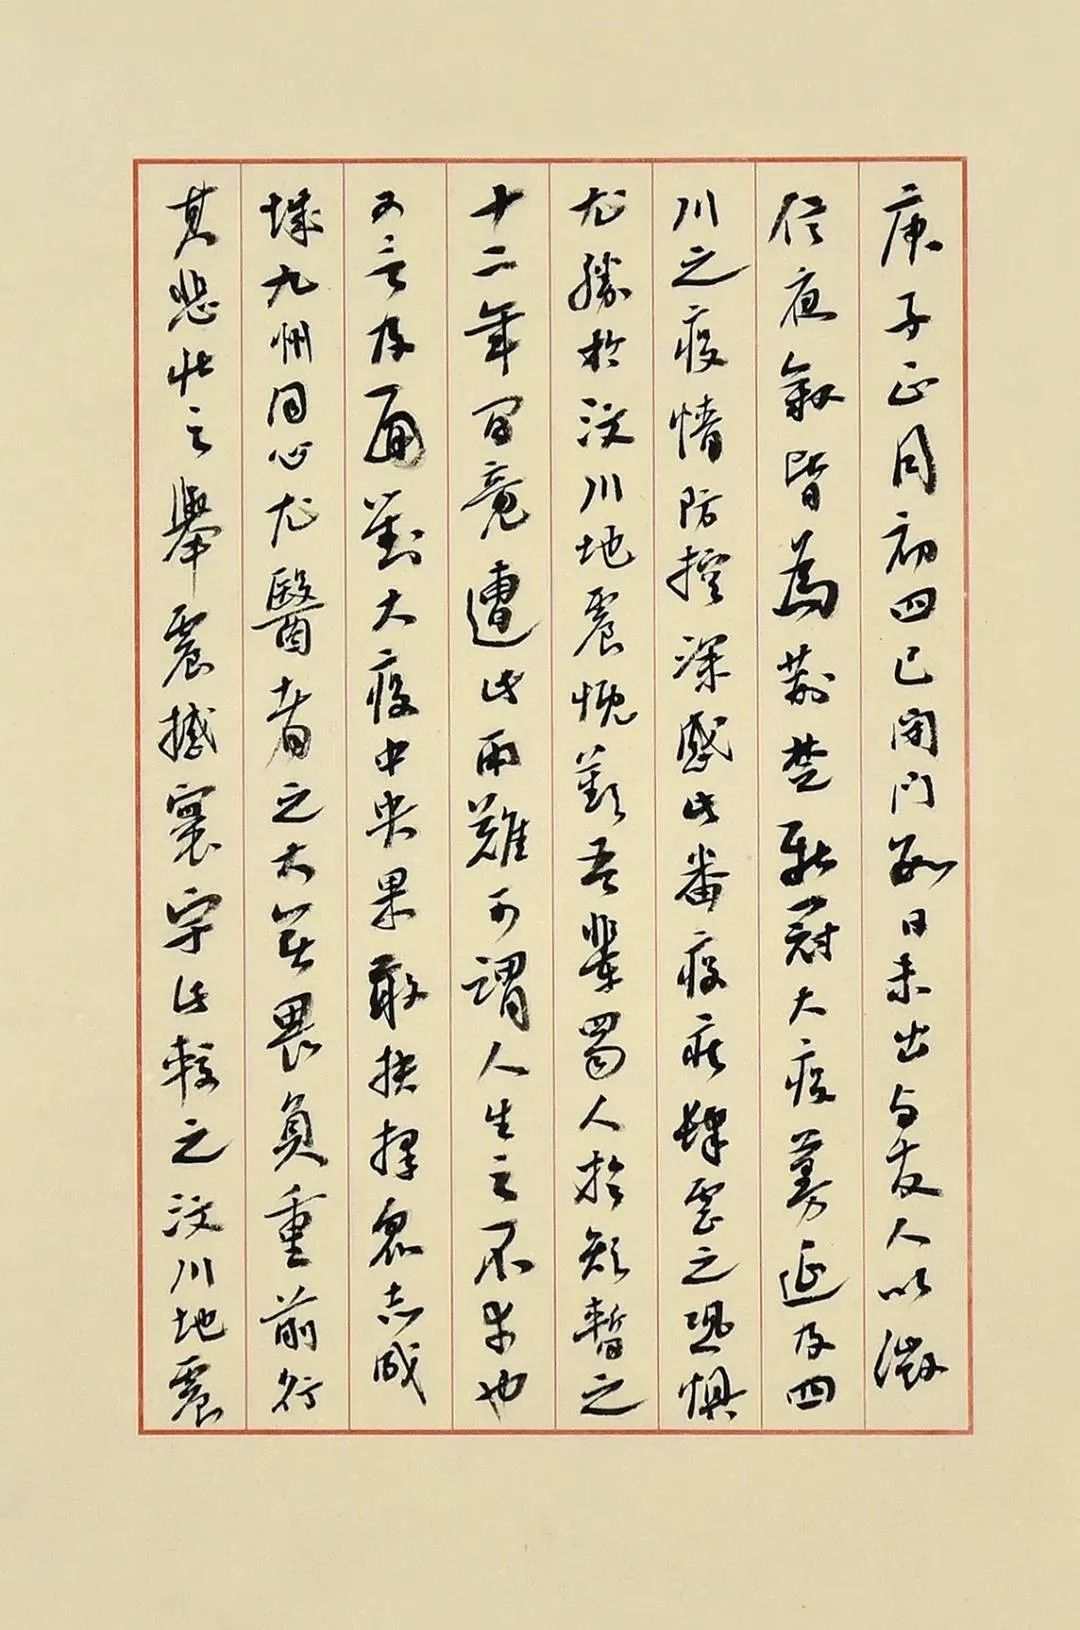 庚子正月初四已閉門數日未出與友人以微
信夜敘皆為荊楚新冠大疫蔓延及四
川之疫情防控深感此番疫疾肆虐之恐懼
尤勝於汶川地震慨歎吾輩蜀人於短暫之
十二年間竟遭此兩難可謂人生之不幸也
又言及面對大疫中央果敢抉擇眾志成
城九州同心尤醫者之大無畏負重前行
其悲壯之舉震撼寰宇此較之汶川地震